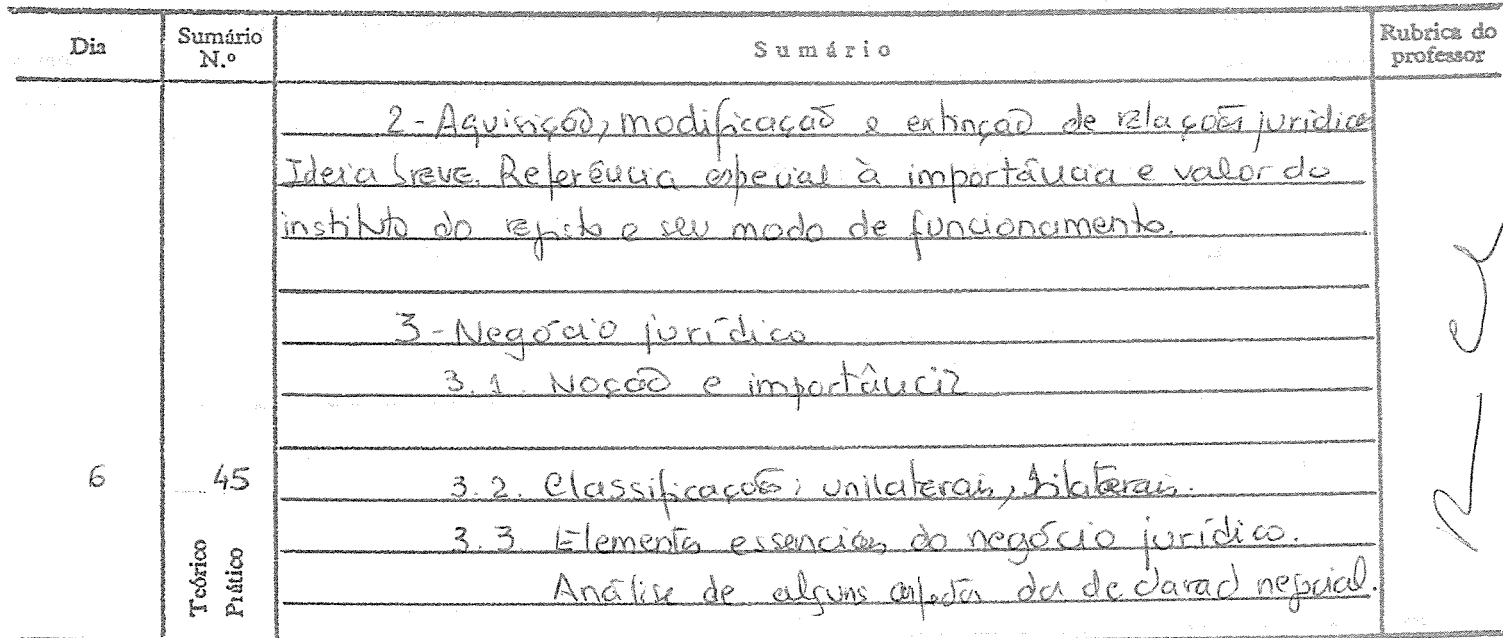 Dia
Sumário N.º
Sumário
Rubrica do professor
2 - Aquisição, modificação e extinção de relações jurídicas
Ideia breve. Referência especial à importância e valor do
instituto do registo e seu modo de funcionamento.
3 - Negócio jurídico
3.1. Noção e importância
6
45
Teórico
Prático
3.2. Classificações; unilaterais, bilaterais.
3.3. Elementos essenciais do negócio jurídico.
Análise de alguns aspectos da declaração negocial.